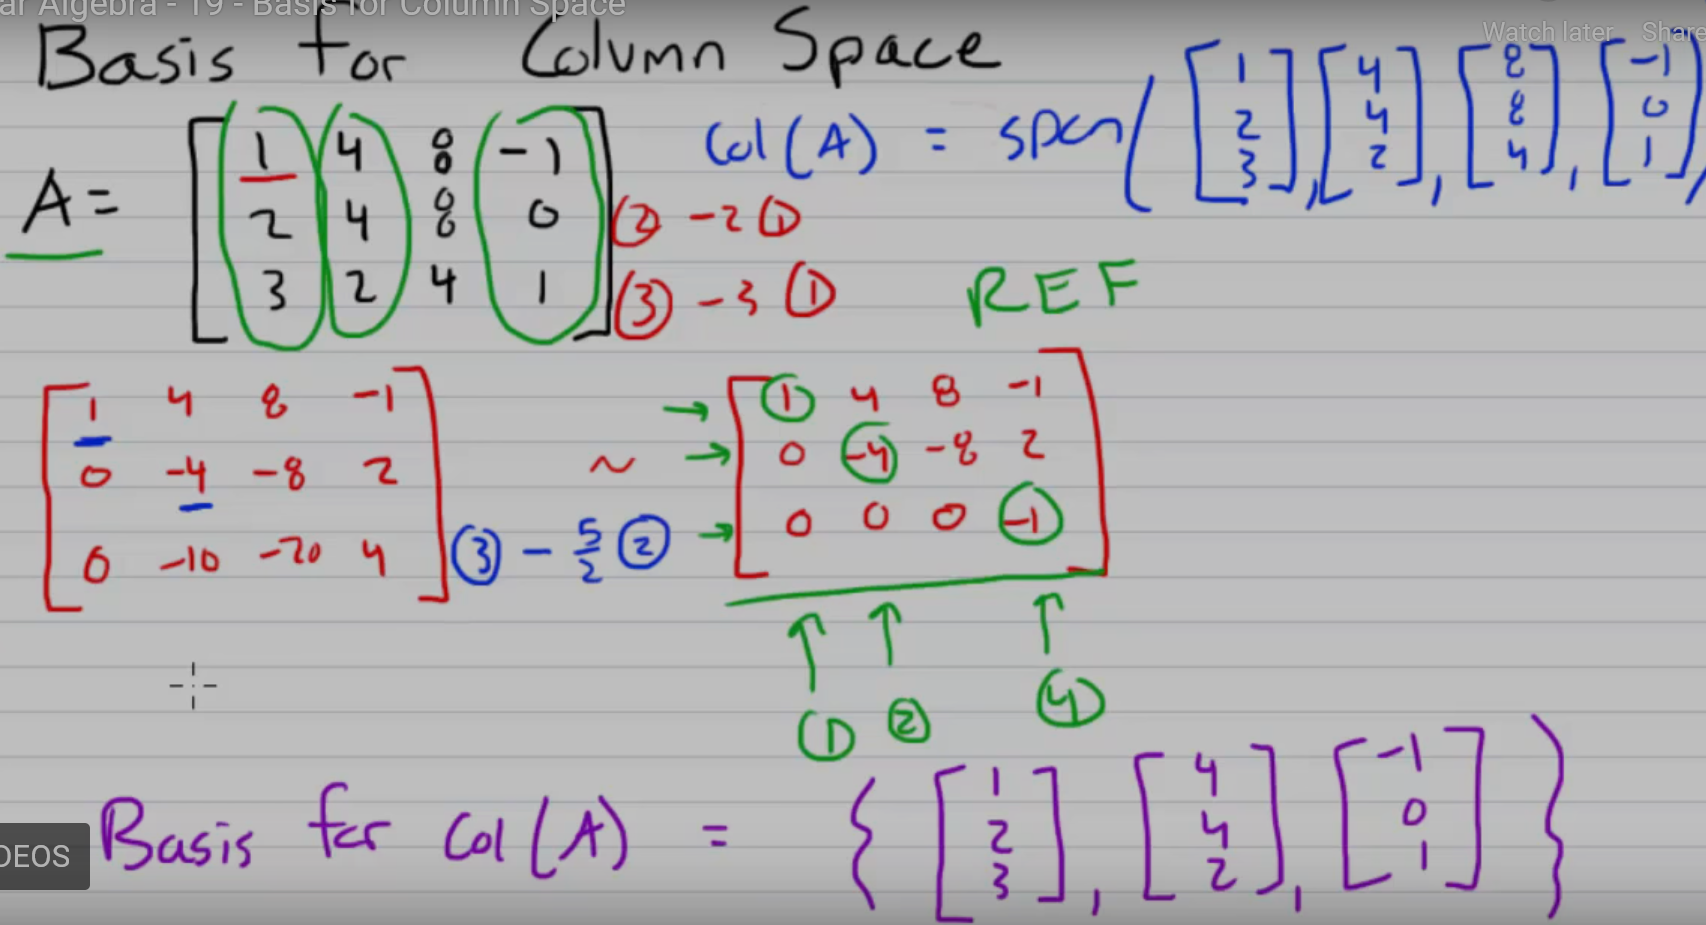 ar Algebra - 19 - Basis for Column Space
Watch later Share
Basis for Column Space
A = [ 1 4 8 -1
2 4 8 0
3 2 4 1 ]
② -2 ①
③ -3 ①
Col(A) = span( [1 2 3], [4 4 2], [8 8 4], [-1 0 1] )
REF
[ 1 4 8 -1
0 -4 -8 2
0 -10 -20 4 ]
③ - 5/2 ②
~
→ [ 1 4 8 -1
→ 0 -4 -8 2
→ 0 0 0 -1 ]
↑ ↑ ↑
① ② ④
Basis for Col(A) = { [1 2 3], [4 4 2], [-1 0 1] }
DEOS